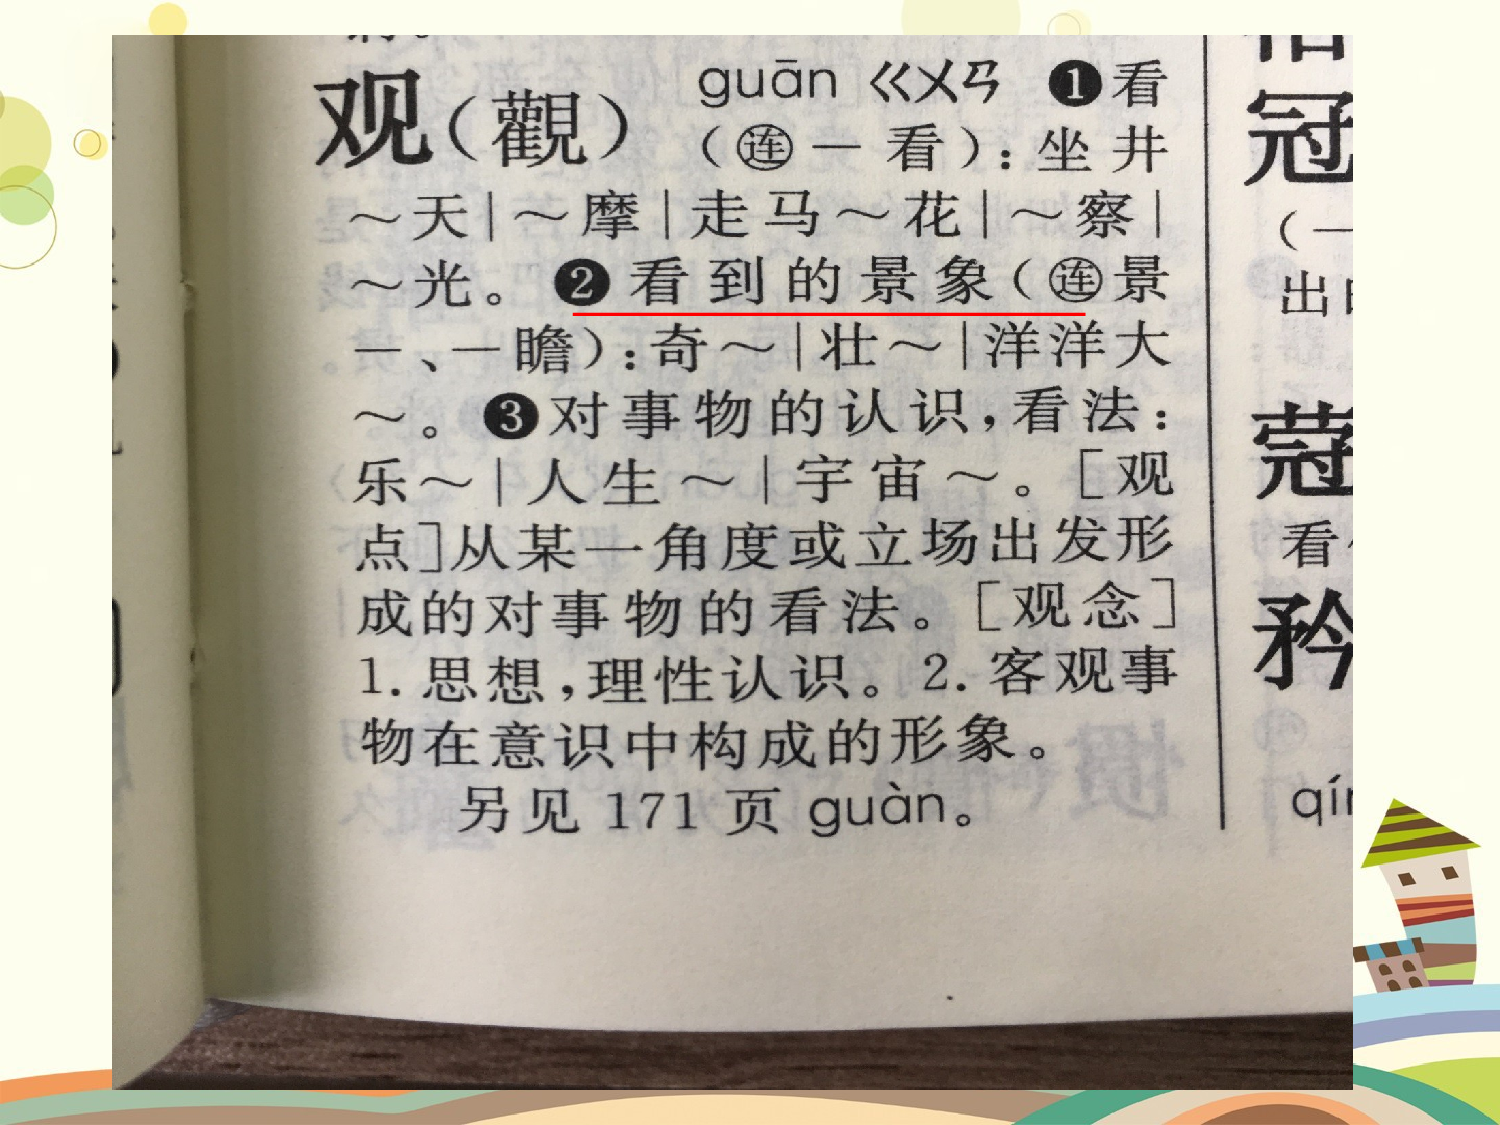 观(觀) guān ㄍㄨㄢ ❶看
(㊣连一看):坐井
～天|～摩|走马～花|～察|
～光。 ❷看到的景象(连景
一、一瞻):奇～|壮～|洋洋大
～。 ❸对事物的认识,看法:
乐～|人生～|宇宙～。[观
点]从某一角度或立场出发形
成的对事物的看法。[观念]
1.思想,理性认识。2.客观事
物在意识中构成的形象。
另见 171 页 guàn。
冠
(一
出
蔻
看
矜